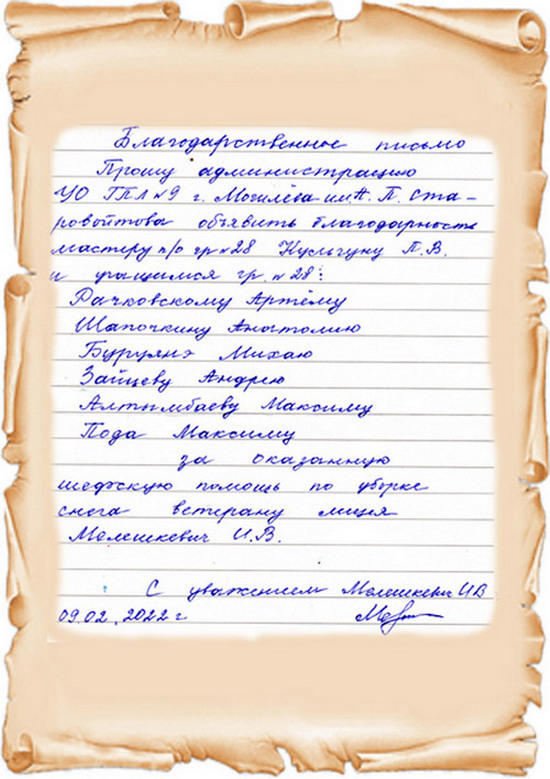 Благодарственное письмо
Прошу администрацию
УО ГПЛ №9 г. Могилёва им А. П. Ста-
ровойтова объявить благодарность
мастеру п/о гр №28 Кульгуну П.В.
и учащимся гр. №28:
Рачковскому Артёму
Шапочкину Анатолию
Буруянэ Михаю
Зайцеву Андрею
Алтымбаеву Максиму
Пода Максиму
за оказанную
шефскую помощь по уборке
снега ветерану лицея
Мелешкевич И.В.
С уважением Мелешкевич ИВ
09.02.2022 г